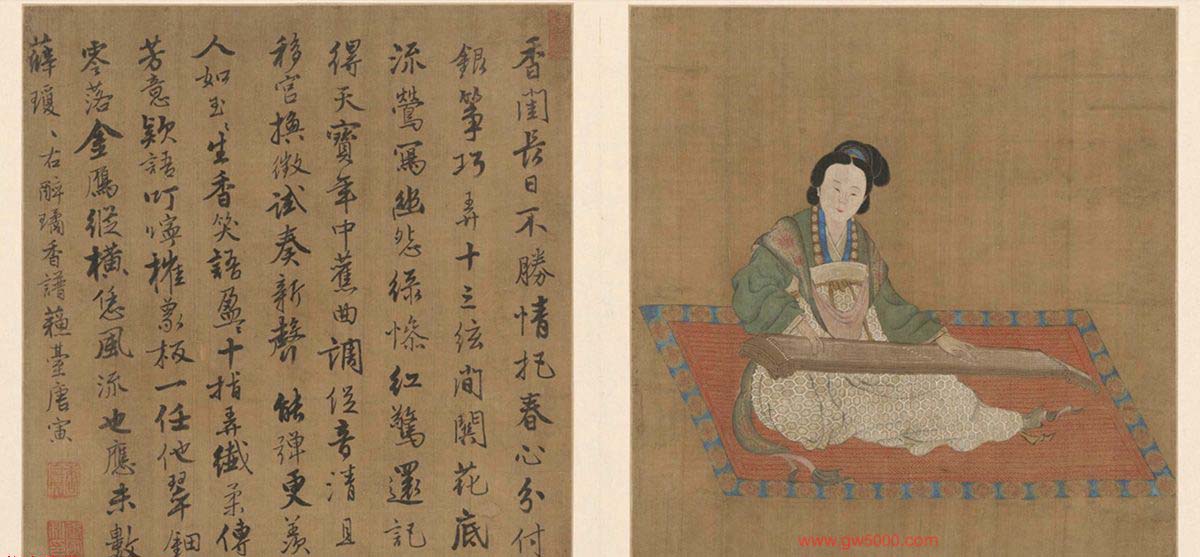 香閨長日不勝情把春心分付
銀箏巧弄十三弦間關花底
流鶯寫幽怨綠慘紅驚還記
得天寶年中舊曲調促音清且
移宮換徵試奏新聲能彈更羨
人如玉〻生香笑語盈〻十指弄纖柔傳
芳意款語叮嚀摧象板一任他翠鈿
零落金雁縱橫恁風流也應未數
薛瓊〻右醉瑤香譜蘇臺唐寅
www.gw5000.com